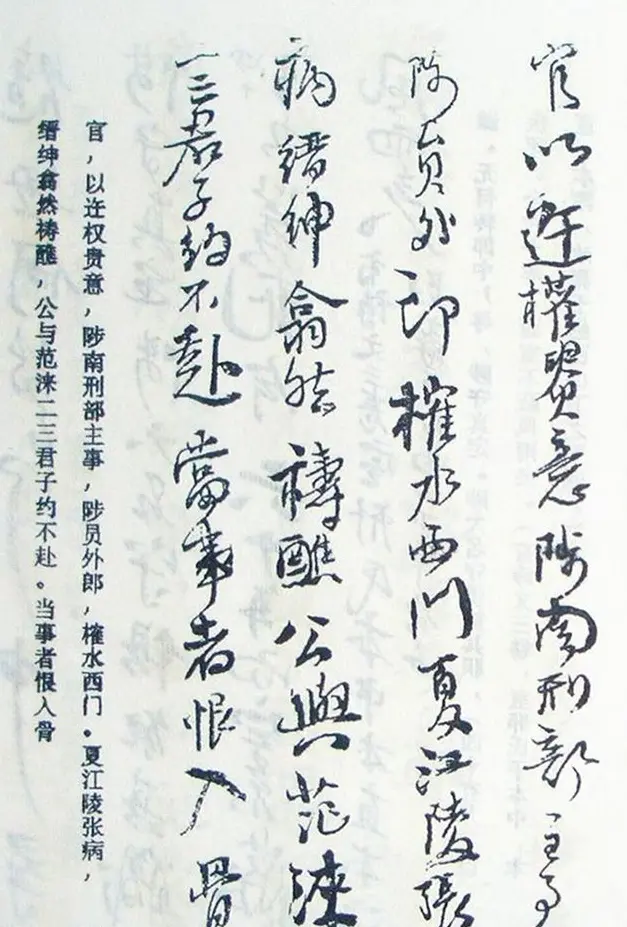 官以迕權貴意陟南刑部主事
陟員外郎榷水西門夏江陵張
病縉紳翕然禱醮公與范淶
二三君子約不赴當事者恨入骨
官，以迕权贵意，陟南刑部主事，陟员外郎，榷水西门。夏江陵张病，
缙绅翕然祷醮，公与范涞二三君子约不赴。当事者恨入骨